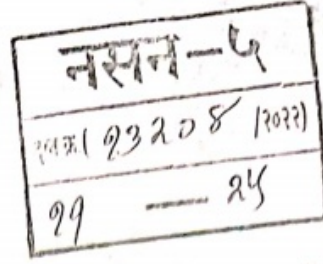 नसन-५
दस्त क्र.( १३२०४ /२०२२)
११ — २५